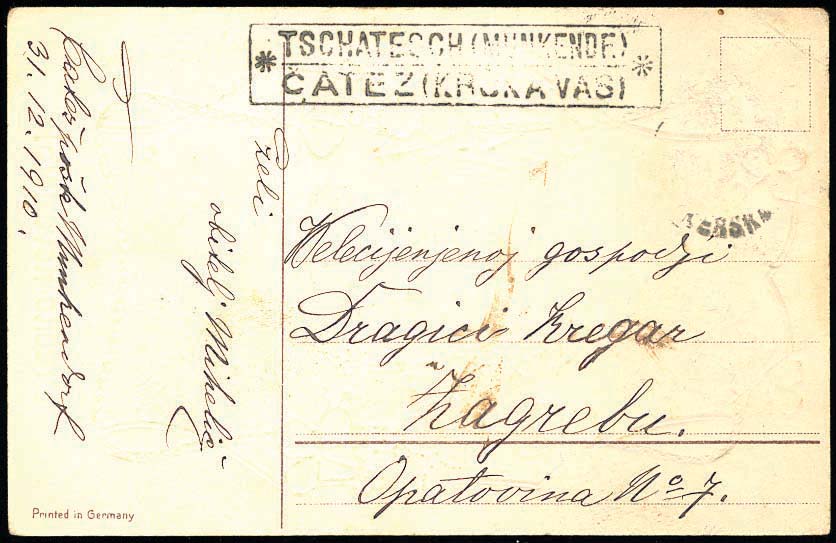 * TSCHATESCH (MUNKENDF.) *
ČATEŽ (KRŠKA VAS)
Čatež pošt Munkendorf
31. 12. 1910.
želi
obitelj Mihelič
Velecijenjenoj gospodji
Dragici Kregar
Zagrebu.
Opatovina No 7.
Printed in Germany